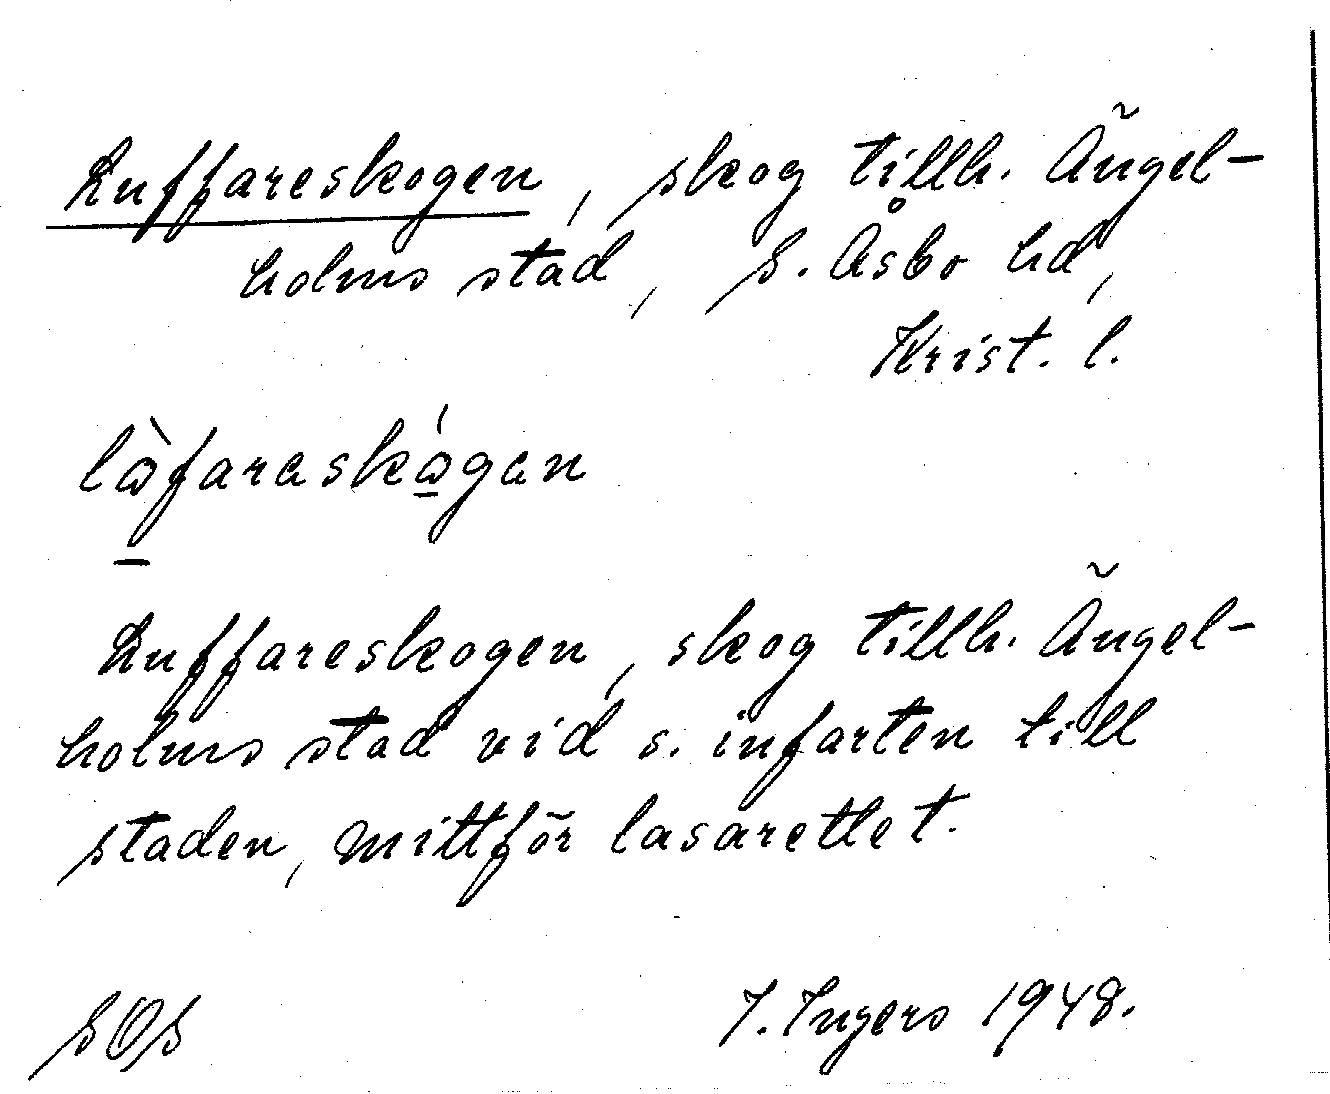 Luffareskogen, skog tillh. Ängel-
holms stad, S. Åsbo hd,
Krist. l.
làfaraskágan
Luffareskogen, skog tillh. Ängel-
holms stad vid s. infarten till
staden, mittför lasarettet.
SOS
I. Ingers 1948.